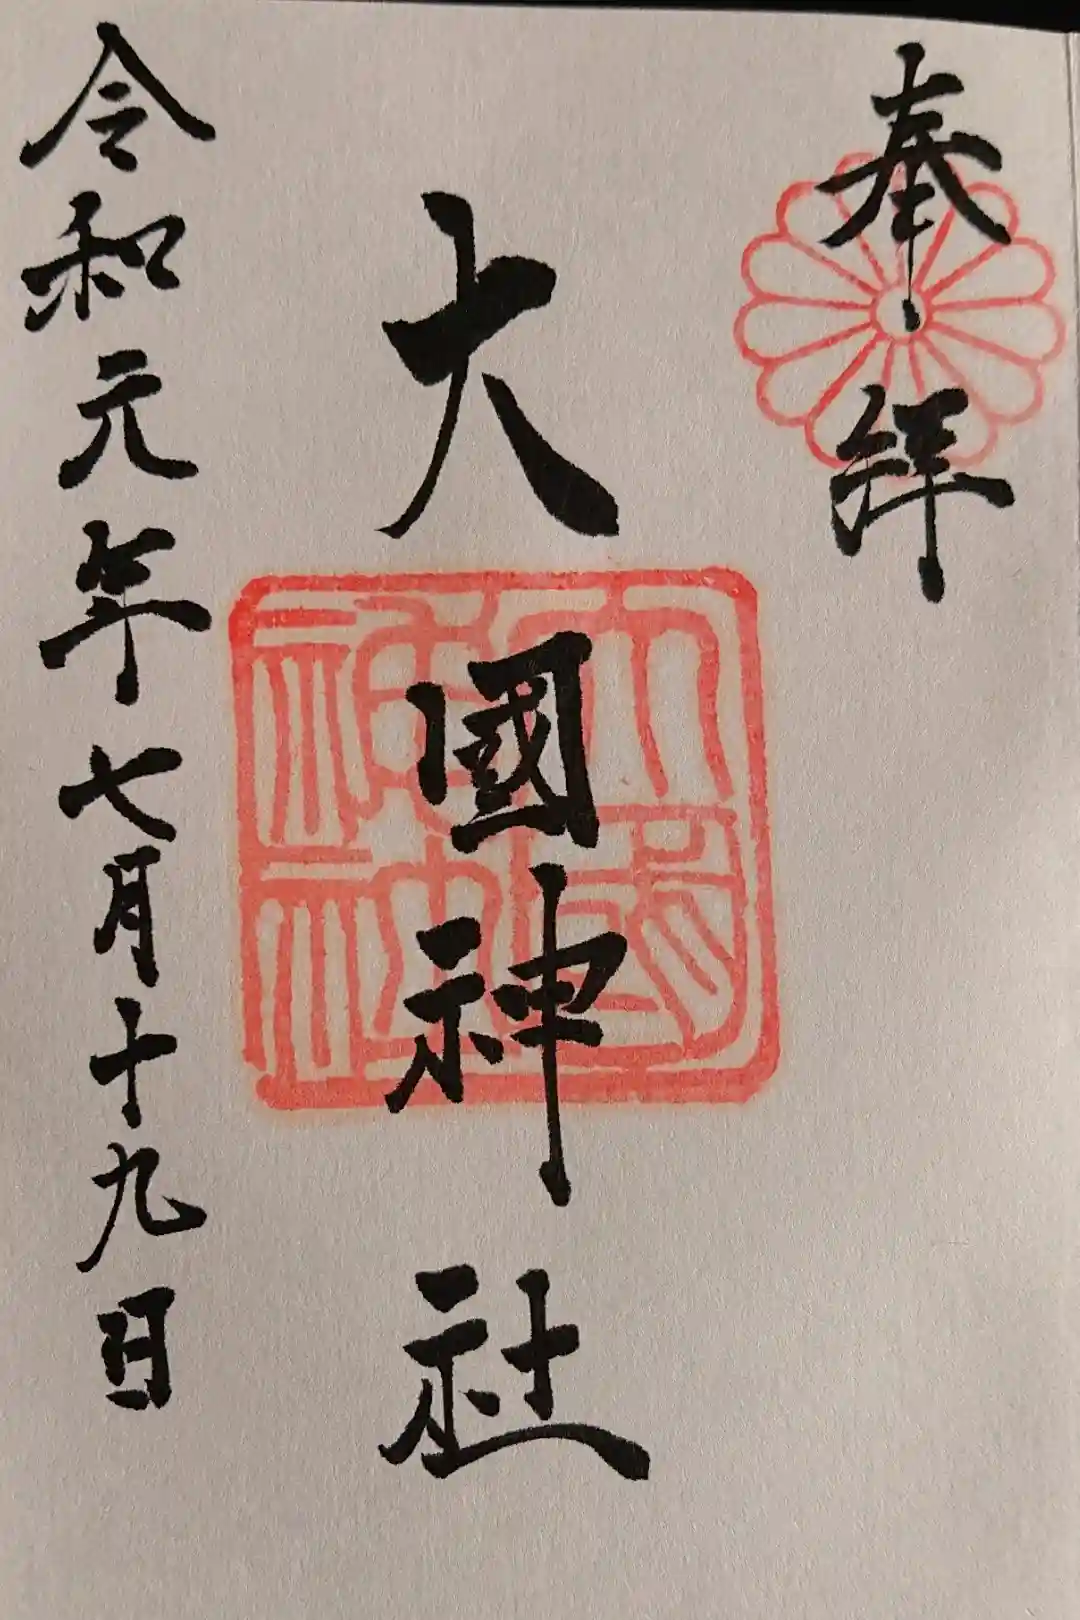 奉拝
大國神社
大國神社
令和元年七月十九日